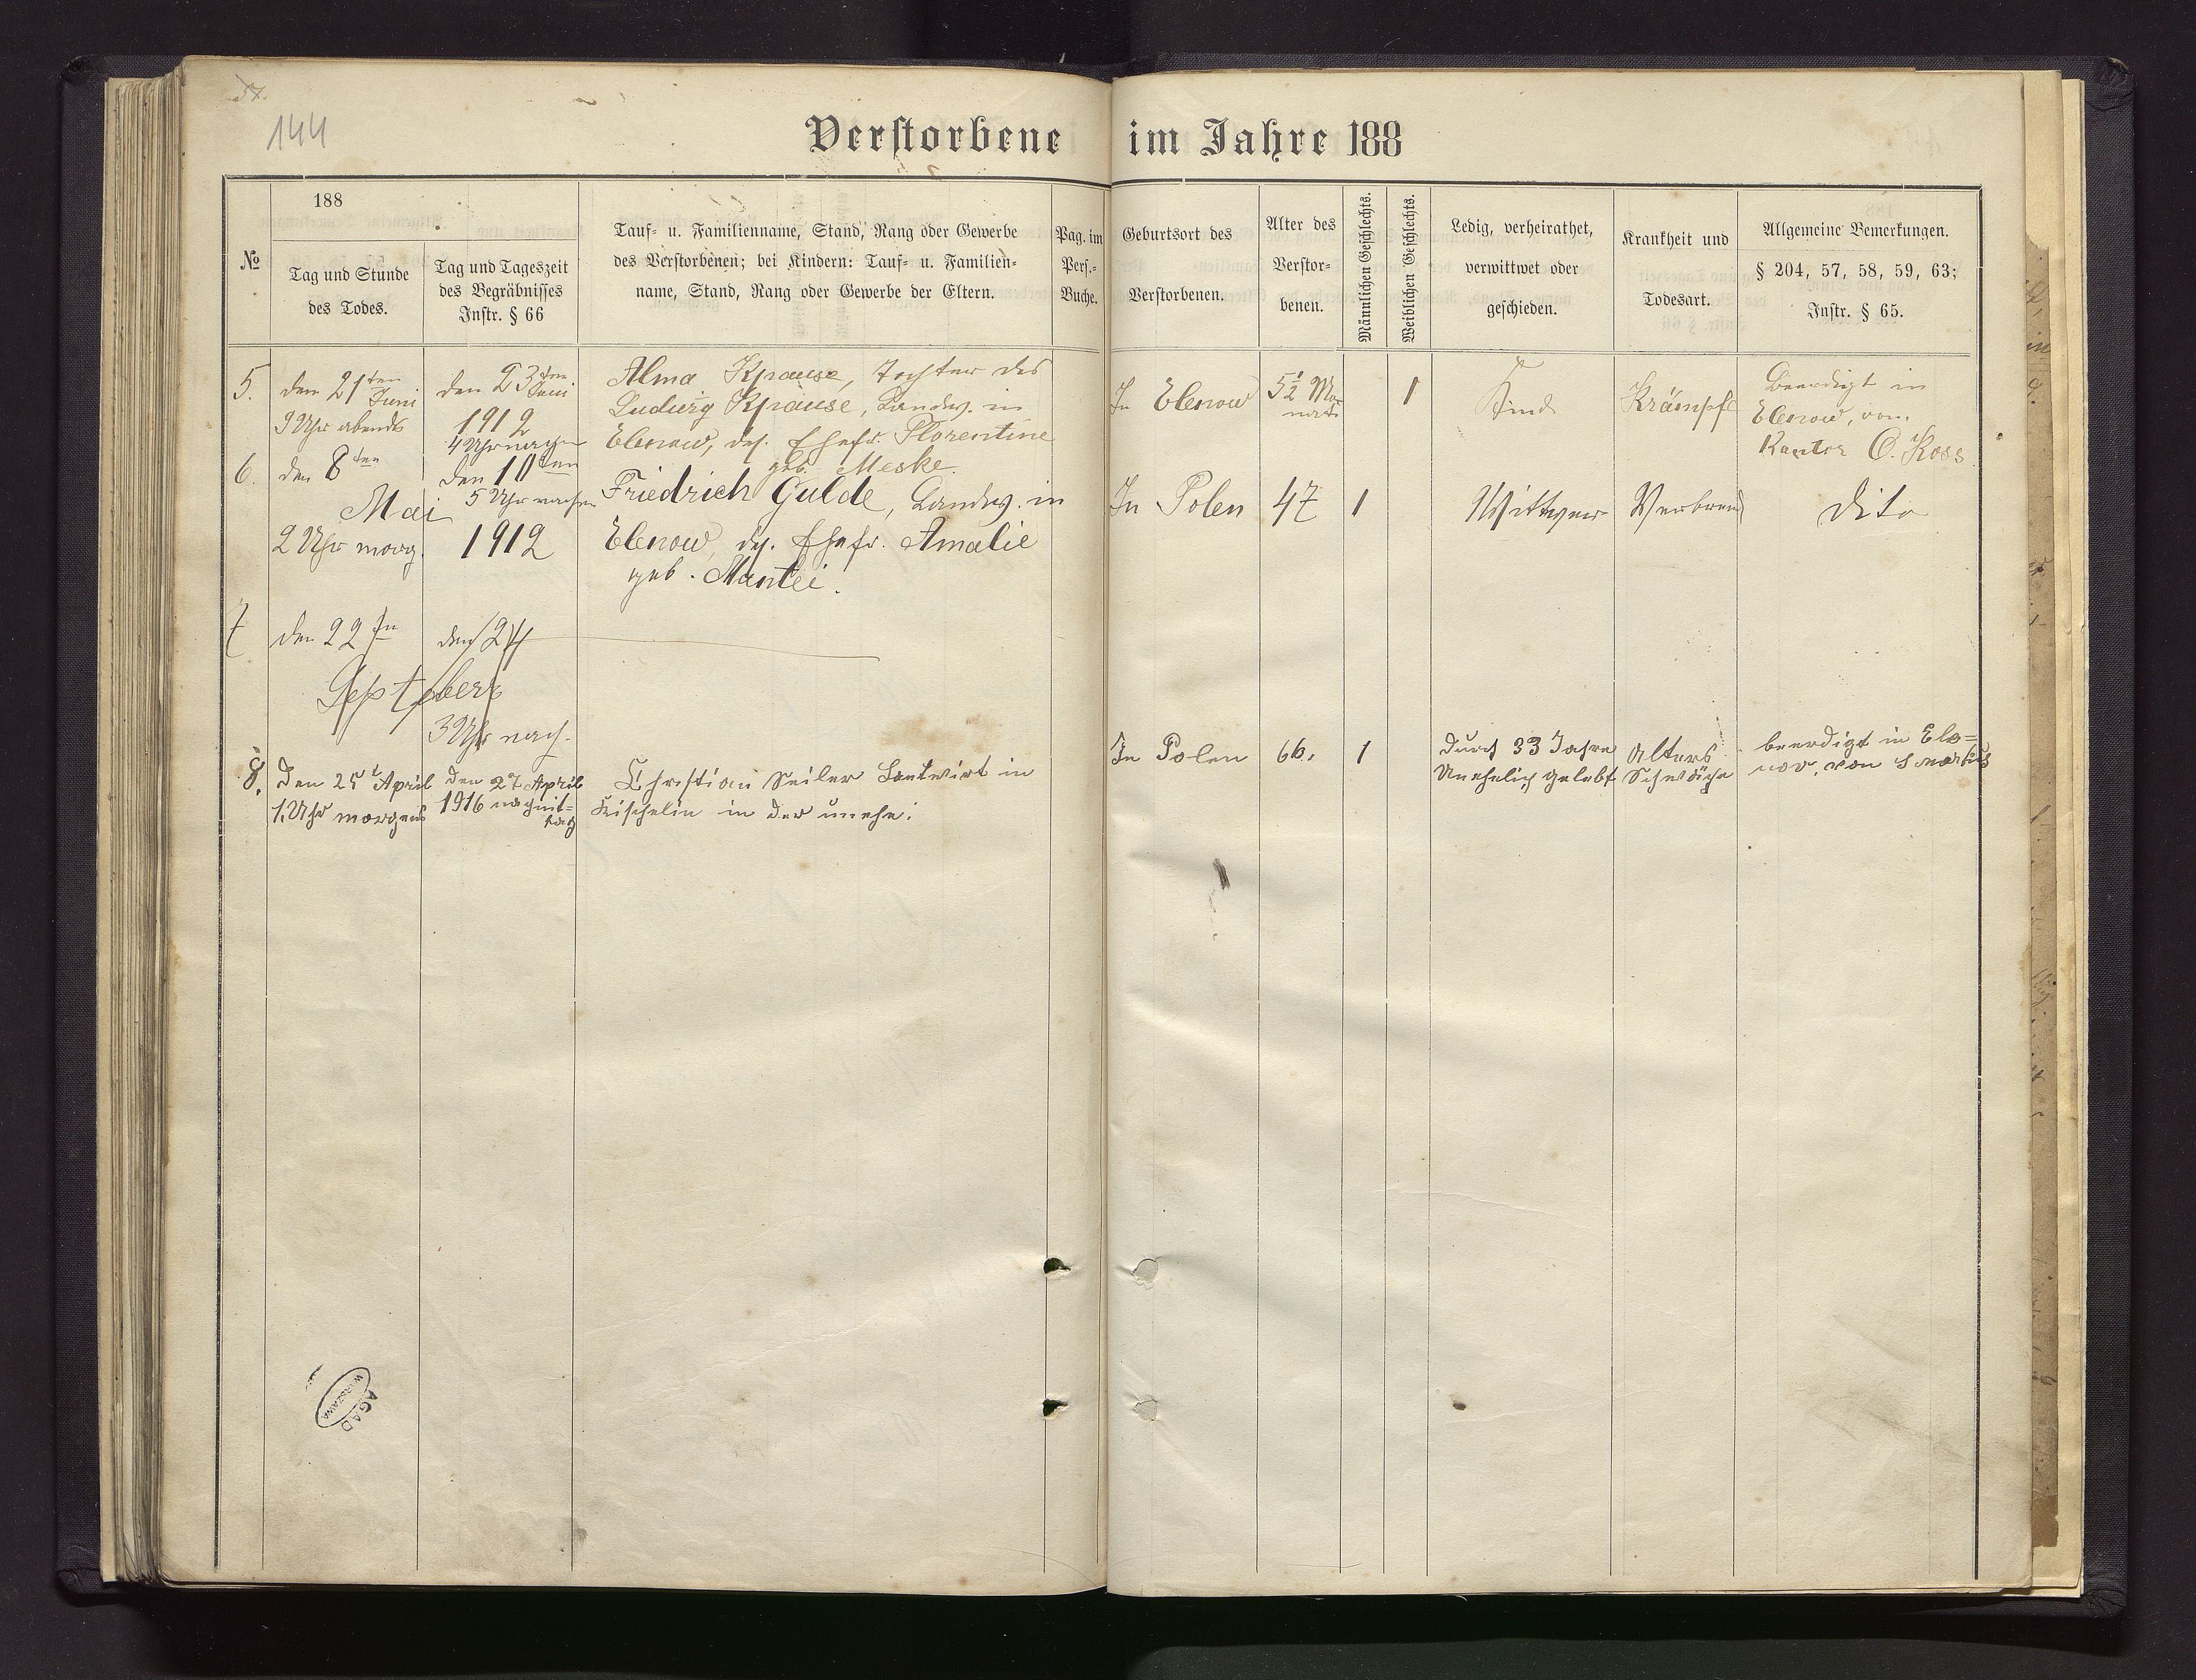 144
Verstorbene im Jahre 188
№
188
Tag und Stunde
des Todes.
Tag und Tageszeit
des Begräbnisses
Instr. § 66
Tauf- u. Familienname, Stand, Rang oder Gewerbe
des Verstorbenen; bei Kindern: Tauf- u. Familien-
name, Stand, Rang oder Gewerbe der Eltern.
Pag. im
Pers.-
Buche.
Geburtsort des
Verstorbenen.
Alter des
Verstor-
benen.
Männlichen Geschlechts.
Weiblichen Geschlechts.
Ledig, verheirathet,
verwittwet oder
geschieden.
Krankheit und
Todesart.
Allgemeine Bemerkungen.
§ 204, 57, 58, 59, 63;
Instr. § 65.
5.
den 21ten
Juni
9 Uhr abends
den 23ten
Juni
1912
4 Uhr nachm
Alma Krause, Tochter des
Ludwig Krause, Landw. in
Elenow, des. Ehefr. Florentine
geb. Meske.
In Elenow
5 1/2 Mo-
nate
1
Kind
Krämpfe
Beerdigt in
Elenow, vom
Kantor O. Koss
6.
den 8ten
Mai
2 Uhr morg.
den 10ten
5 Uhr nachm
1912
Friedrich Gulde, Landw. in
Elenow, des. Ehefr. Amalie
geb. Mantei.
In Polen
47
1
Wittwer
Dito
7
den 22
den 24
September
3 Uhr nach.
8.
Den 25t April
1 Uhr morgens
den 27 April
1916 nachmit-
tag
Christian Seiler Lantwirt in
Kischelin in der unehe.
In Polen
66.
1
Durch 33 Jahre
Unehelich gelebt
Alters
Schwäche
beerdigt in Ele-
now, von
AGAD
WARSZAWA